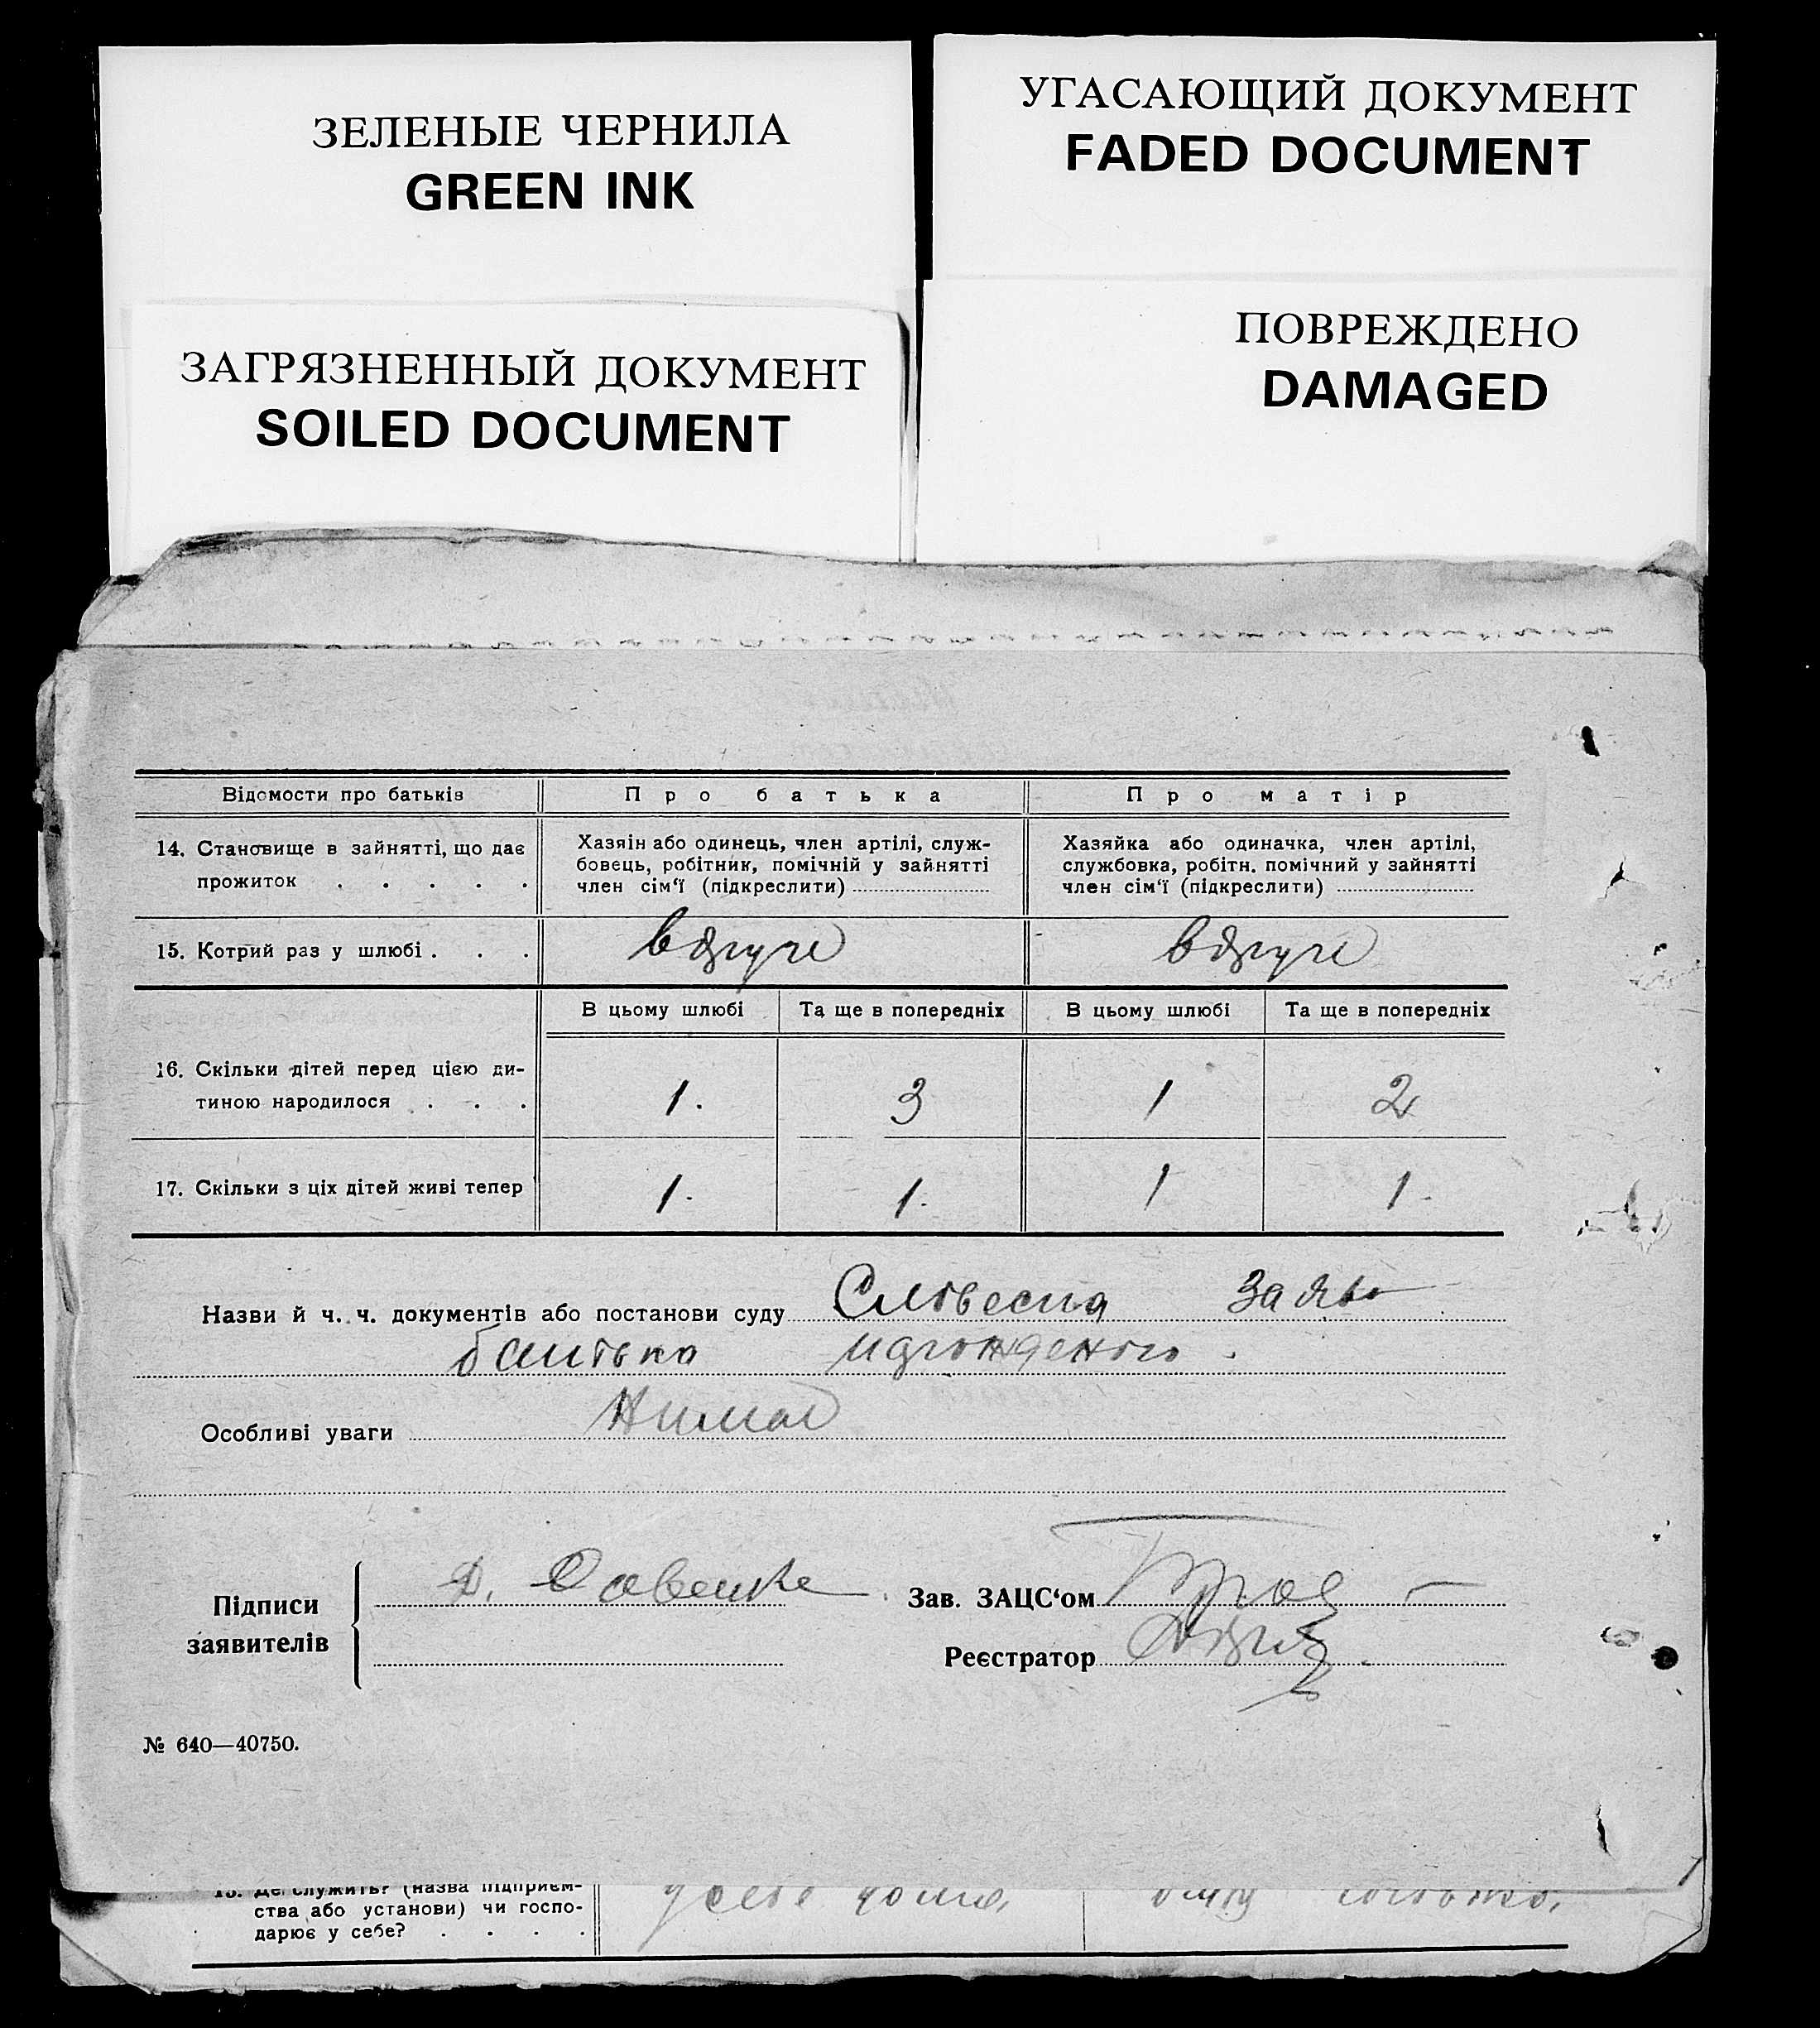 ЗЕЛЕНЫЕ ЧЕРНИЛА
GREEN INK
УГАСАЮЩИЙ ДОКУМЕНТ
FADED DOCUMENT
ЗАГРЯЗНЕННЫЙ ДОКУМЕНТ
SOILED DOCUMENT
ПОВРЕЖДЕНО
DAMAGED
Відомости про батьків
Про батька
Про матір
14. Становище в зайнятті, що дає
прожиток . . . . .
Хазяїн або одинець, член артілі, служ-
бовець, робітник, помічній у зайнятті
член сім'ї (підкреслити)
Хазяйка або одиначка, член артілі,
службовка, робітн. помічний у зайнятті
член сім'ї (підкреслити)
15. Котрий раз у шлюбі . . .
вдруге
вдруге
В цьому шлюбі
Та ще в попередніх
В цьому шлюбі
Та ще в попередніх
16. Скільки дітей перед цією ди-
тиною народилося . . .
1.
3
1
2
17. Скільки з ціх дітей живі тепер
1.
1.
1
1.
Назви й ч. ч. документів або постанови суду Словесна Заява
батька
Особливі уваги Нимає
Підписи
заявителів
Д. Савенко
Зав. ЗАЦС'ом
Реєстратор
№ 640—40750.
13. Де служить? (назва підприєм-
ства або установи) чи госпо-
дарює у себе? . . . .